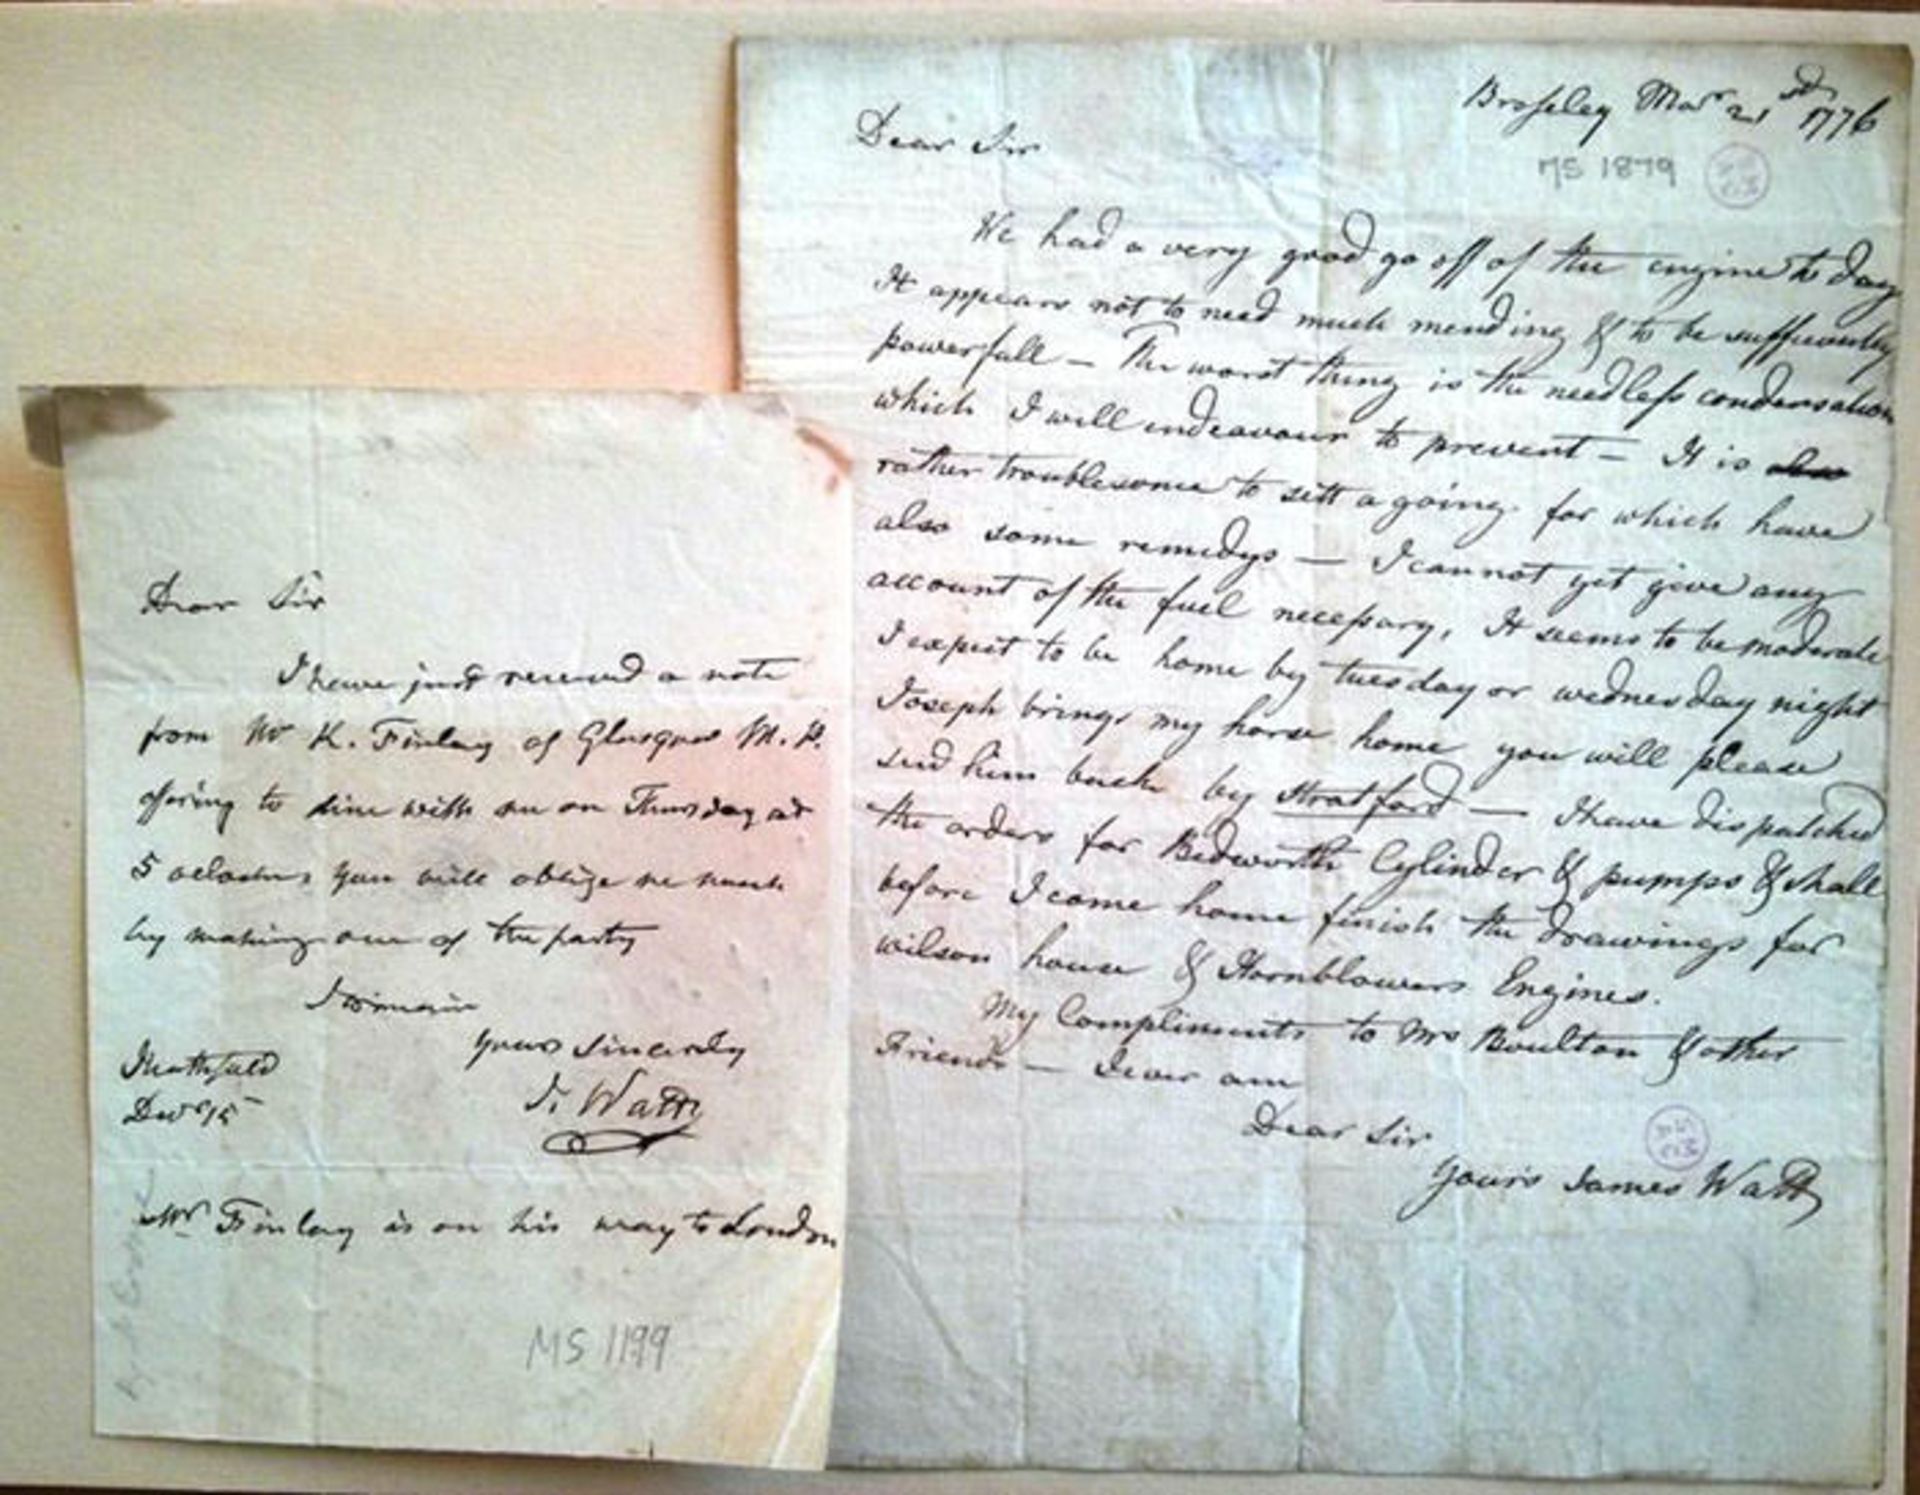 Dear Sir
I have just received a note
from Mr K. Finlay of Glasgow M.P.
offering to dine with me on Thursday at
5 oclock, you will oblige me much
by making one of the party
I remain
yours sincerely
J. Watt
Heathfield
Decr 15
Mr Finlay is on his way to London
MS 1199
Broseley Mar 21sd 1776
MS 1879
Dear Sir
We had a very good go off of the engine to day
It appears not to need much mending & to be sufficiently
powerfull — The worst thing is the needless condensation
which I will endeavour to prevent — It is
rather troublesome to sett a going. for which have
also some remedys — I cannot yet give any
account of the fuel necessary, It seems to be moderate
I expect to be home by tuesday or wednesday night
Joseph brings my horse home you will please
send him back by Stratford — I have dispatched
the orders for Bedworth Cylinder & pumps & shall
before I come home finish the drawings for
wilson house & Hornblowers Engines.
My Compliments to Mrs Boulton & other
Friends — I ever am
Dear Sir
yours James Watt